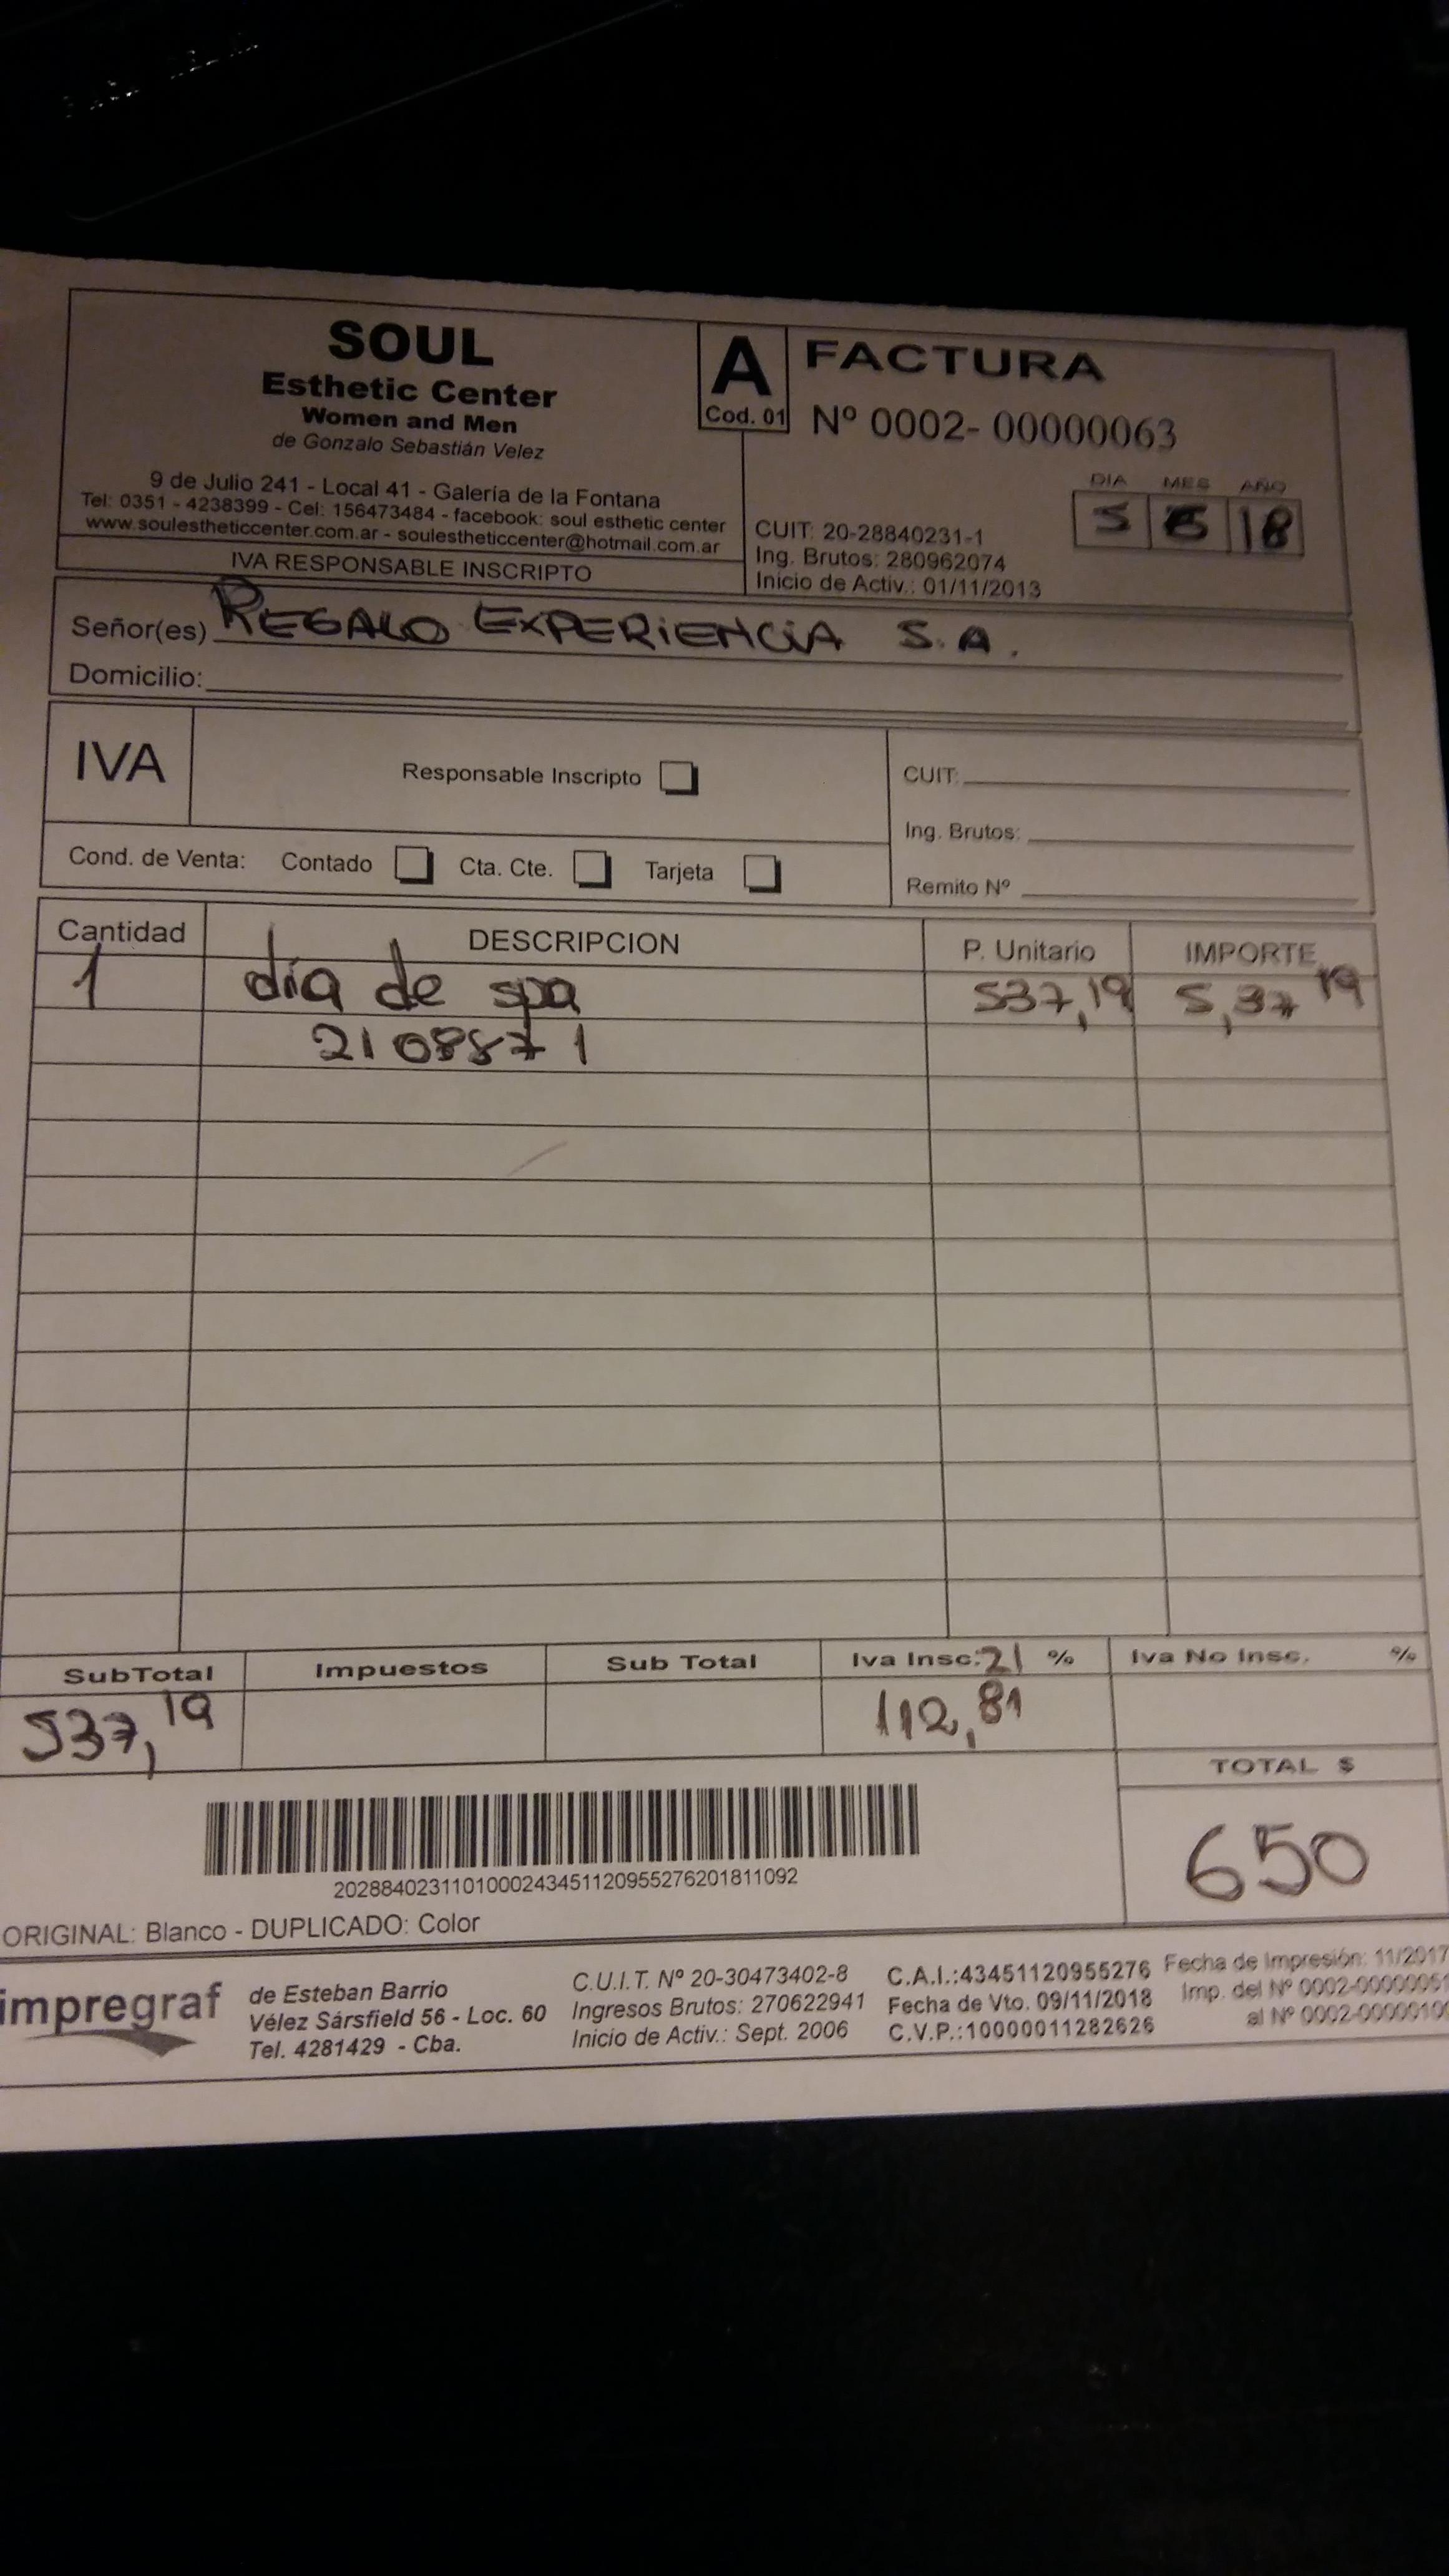 SOUL
Esthetic Center
Women and Men
de Gonzalo Sebastián Velez
9 de Julio 241 - Local 41 - Galería de la Fontana
Tel: 0351 - 4238399 - Cel: 156473484 - facebook: soul esthetic center
www.soulestheticcenter.com.ar - soulestheticcenter@hotmail.com.ar
IVA RESPONSABLE INSCRIPTO
A
Cod. 01
FACTURA
Nº 0002- 00000063
DIA MES AÑO
5 6 18
CUIT: 20-28840231-1
Ing. Brutos: 280962074
Inicio de Activ.: 01/11/2013
Señor(es) REGALO EXPERIENCIA S.A.
Domicilio:
IVA Responsable Inscripto
CUIT:
Ing. Brutos:
Cond. de Venta: Contado Cta. Cte. Tarjeta
Remito Nº
Cantidad DESCRIPCION P. Unitario IMPORTE
1 día de spa 537,19 5,37 19
2108871
SubTotal Impuestos Sub Total Iva Insc.21 % Iva No Insc. %
537,19 112,81
TOTAL $
650
2028840231101000243451120955276201811092
ORIGINAL: Blanco - DUPLICADO: Color
impregraf
de Esteban Barrio
Vélez Sársfield 56 - Loc. 60
Tel. 4281429 - Cba.
C.U.I.T. Nº 20-30473402-8
Ingresos Brutos: 270622941
Inicio de Activ.: Sept. 2006
C.A.I.:43451120955276
Fecha de Vto. 09/11/2018
C.V.P.:10000011282626
Fecha de Impresión: 11/2017
Imp. del Nº 0002-00000051
al Nº 0002-00000100